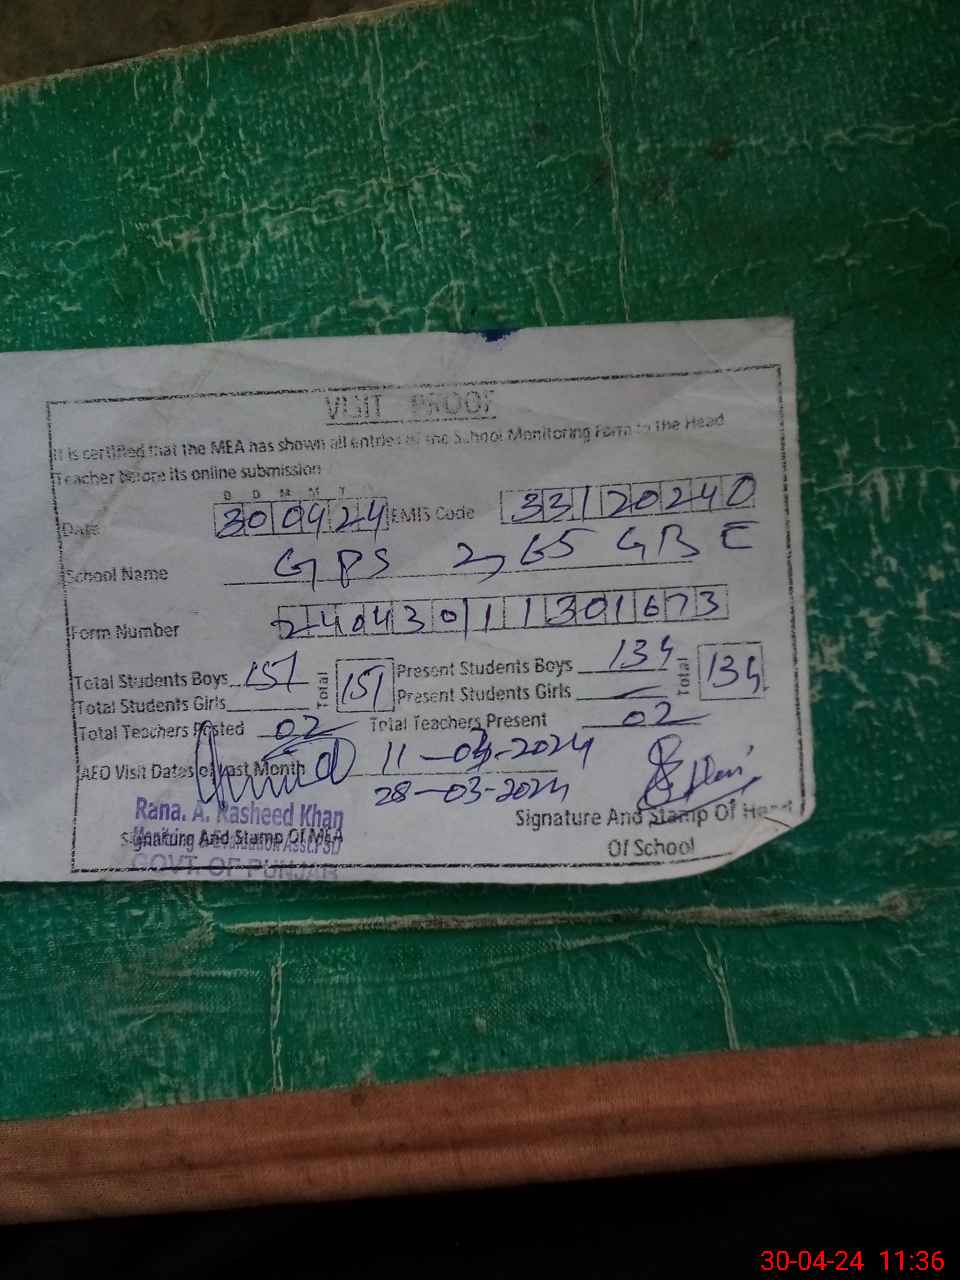 VISIT PROOF
It is certified that the MEA has shown all entries of the School Monitoring Form to the Head
Teacher before its online submission
D D M M Y
Date 300424 EMIS Code 33120240
School Name GPS 265 GB E
Form Number 240430111301673
Total Students Boys 151 Total 151 Present Students Boys 134 Total 134
Total Students Girls Present Students Girls
Total Teachers Posted 02 Total Teachers Present 02
AEO Visit Dates of Last Month 11-03-2024
28-03-2024
Rana. A. Rasheed Khan
Signature And Stamp Of MEA
GOVT. OF PUNJAB
Signature And Stamp Of Head
Of School
30-04-24 11:36